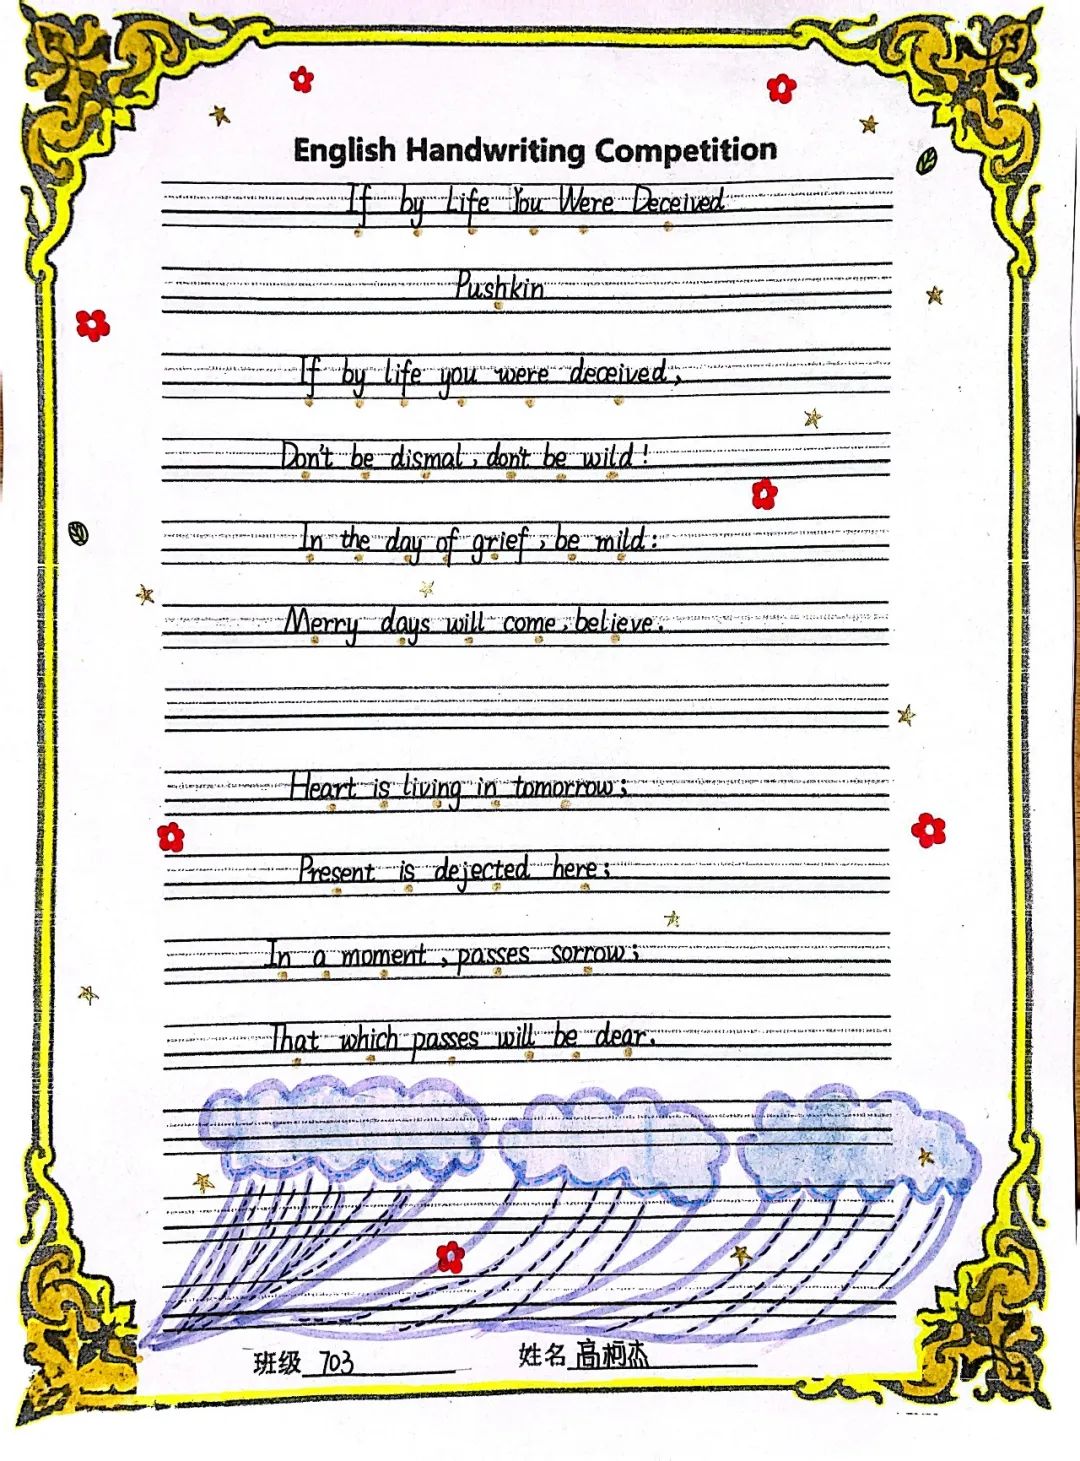 English Handwriting Competition
If by Life You Were Deceived
Pushkin
If by life you were deceived,
Don't be dismal, don't be wild!
In the day of grief, be mild:
Merry days will come, believe.
Heart is living in tomorrow;
Present is dejected here;
In a moment, passes sorrow;
That which passes will be dear.
班级 703 姓名 高柯杰